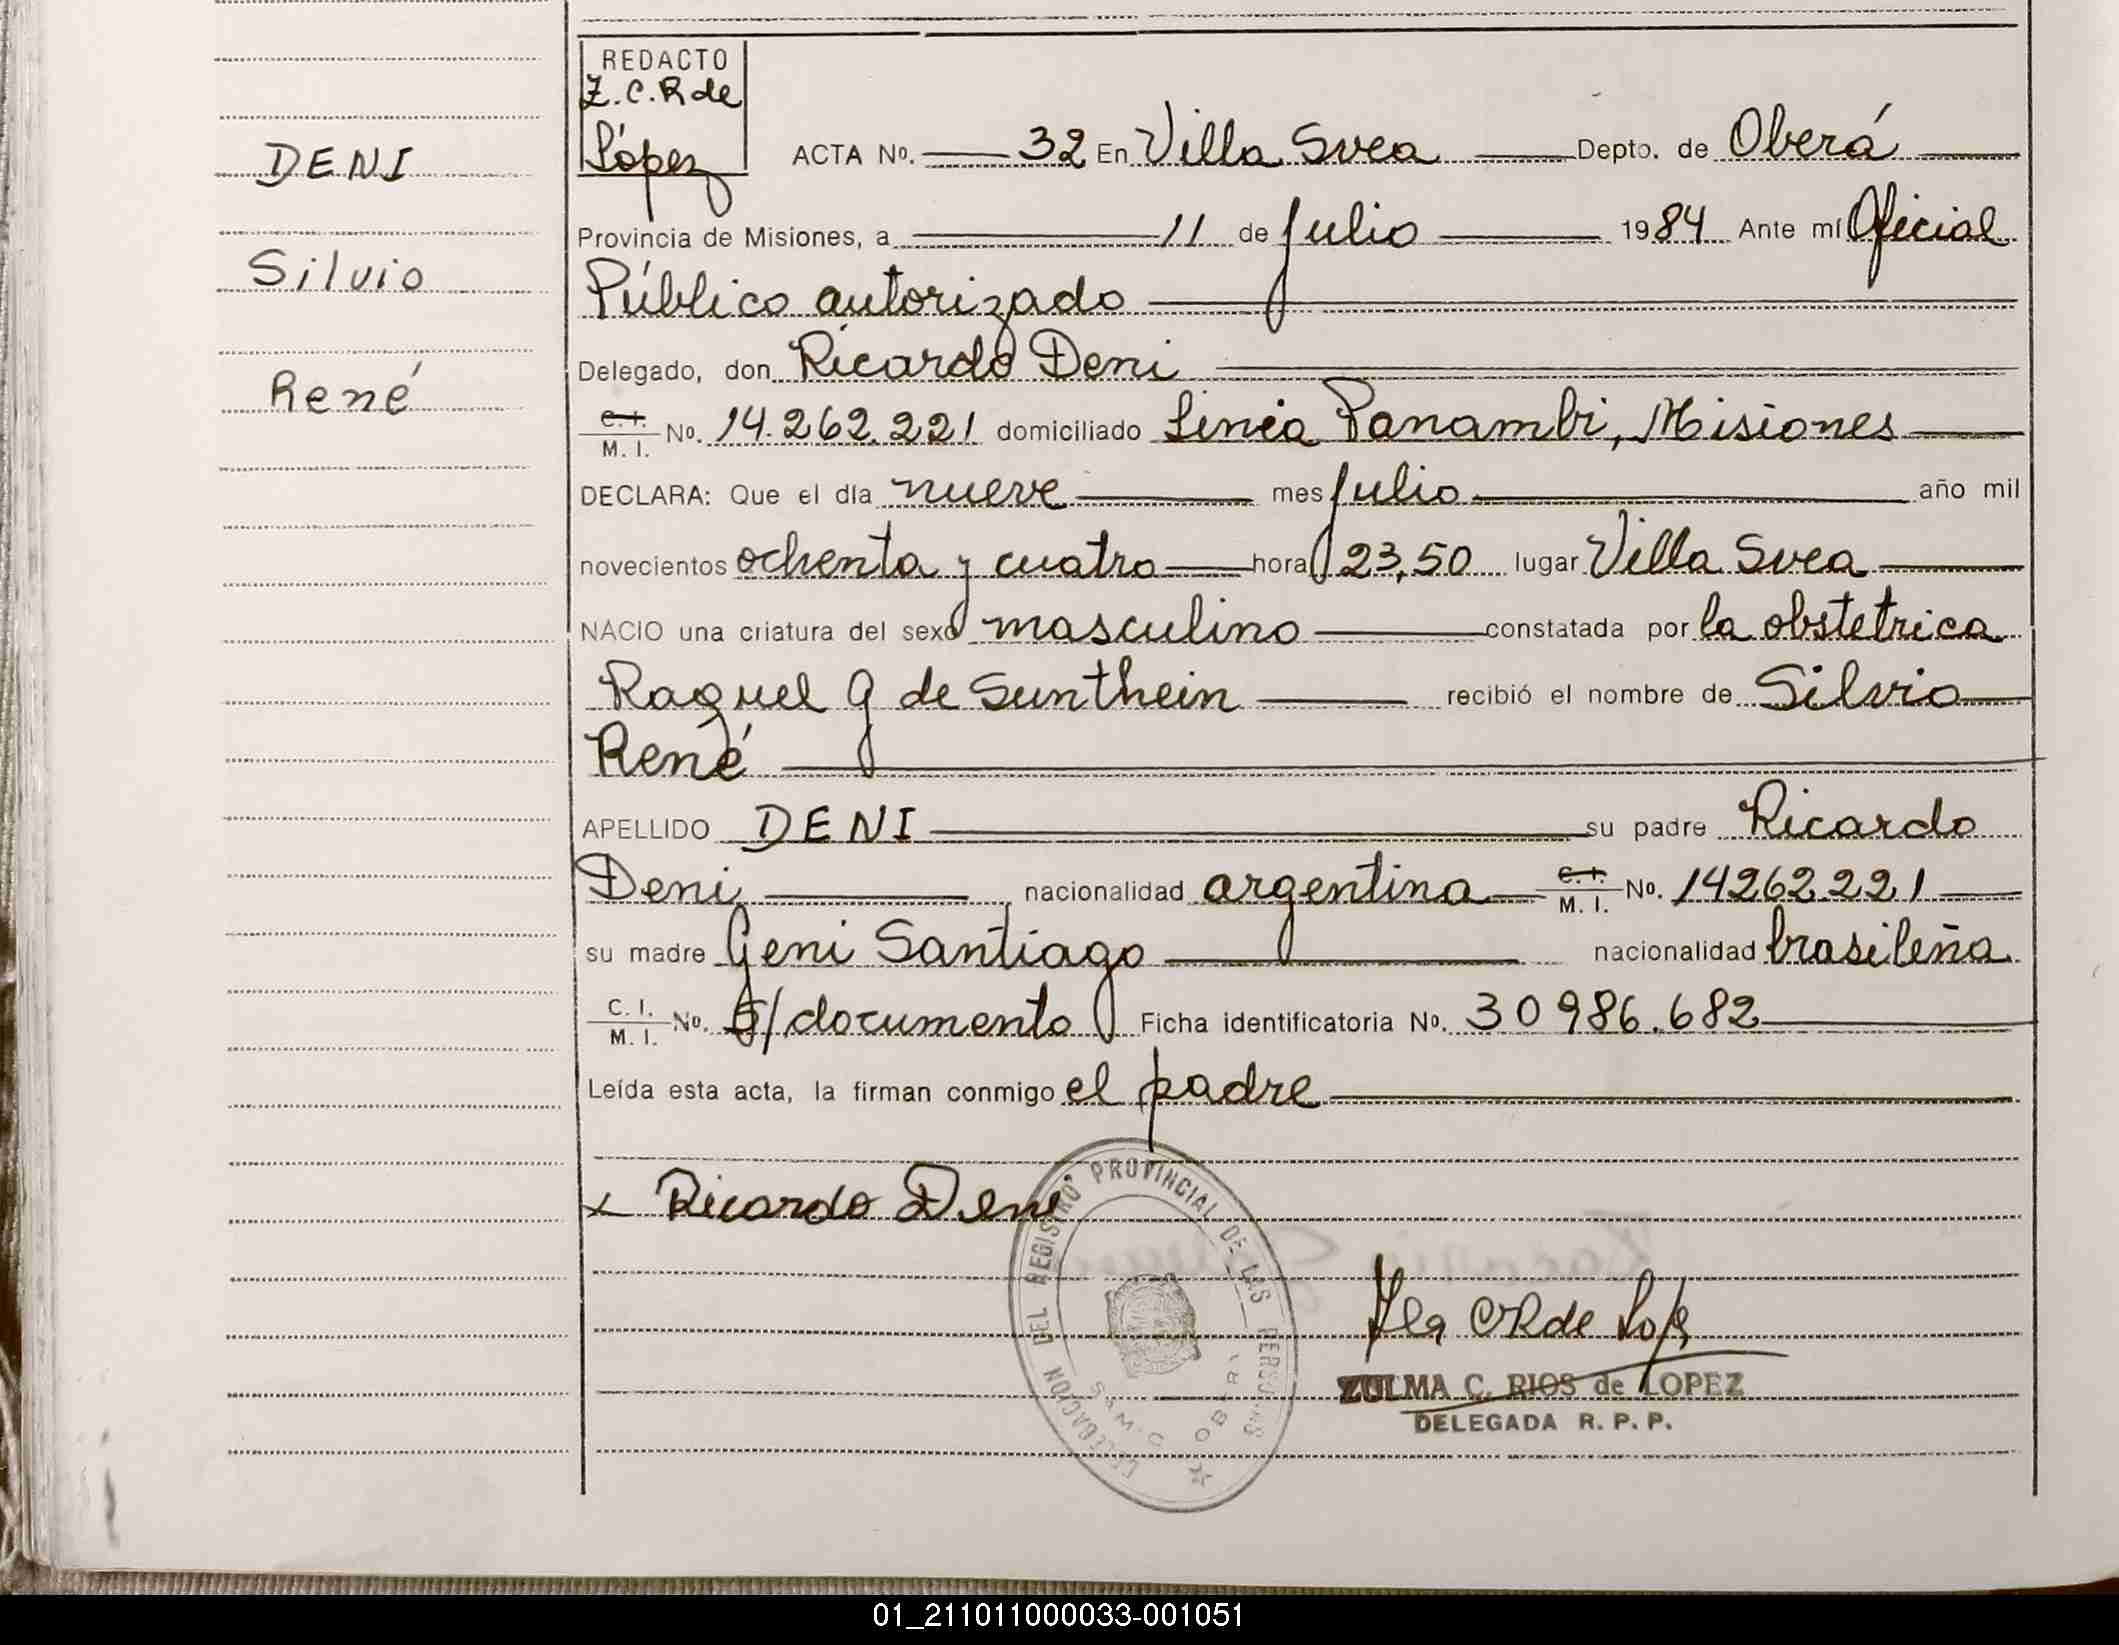 DENI
Silvio
René
REDACTO
Z.C.R de
López
ACTA No. 32 En Villa Svea Depto. de Oberá
Provincia de Misiones, a 11 de Julio 1984 Ante mí Oficial
Público autorizado
Delegado, don Ricardo Deni
C.I. M.I. No. 14.262.221 domiciliado Linea Panambi, Misiones
DECLARA: Que el día nueve mes Julio año mil
novecientos ochenta y cuatro hora 23,50 lugar Villa Svea
NACIO una criatura del sexo masculino constatada por la obstetrica
Raquel G de Sunthein recibió el nombre de Silvio
René
APELLIDO DENI su padre Ricardo
Deni nacionalidad argentina C.I. M.I. No. 14262.221
su madre Geni Santiago nacionalidad brasileña
C.I. M.I. No. S/documento Ficha identificatoria No. 30986.682
Leída esta acta, la firman conmigo el padre
x Ricardo Deni
DELEGACION DEL REGISTRO PROVINCIAL DE LAS PERSONAS
CRde
ZULMA C. RIOS de LOPEZ
DELEGADA R. P. P.
01_211011000033-001051